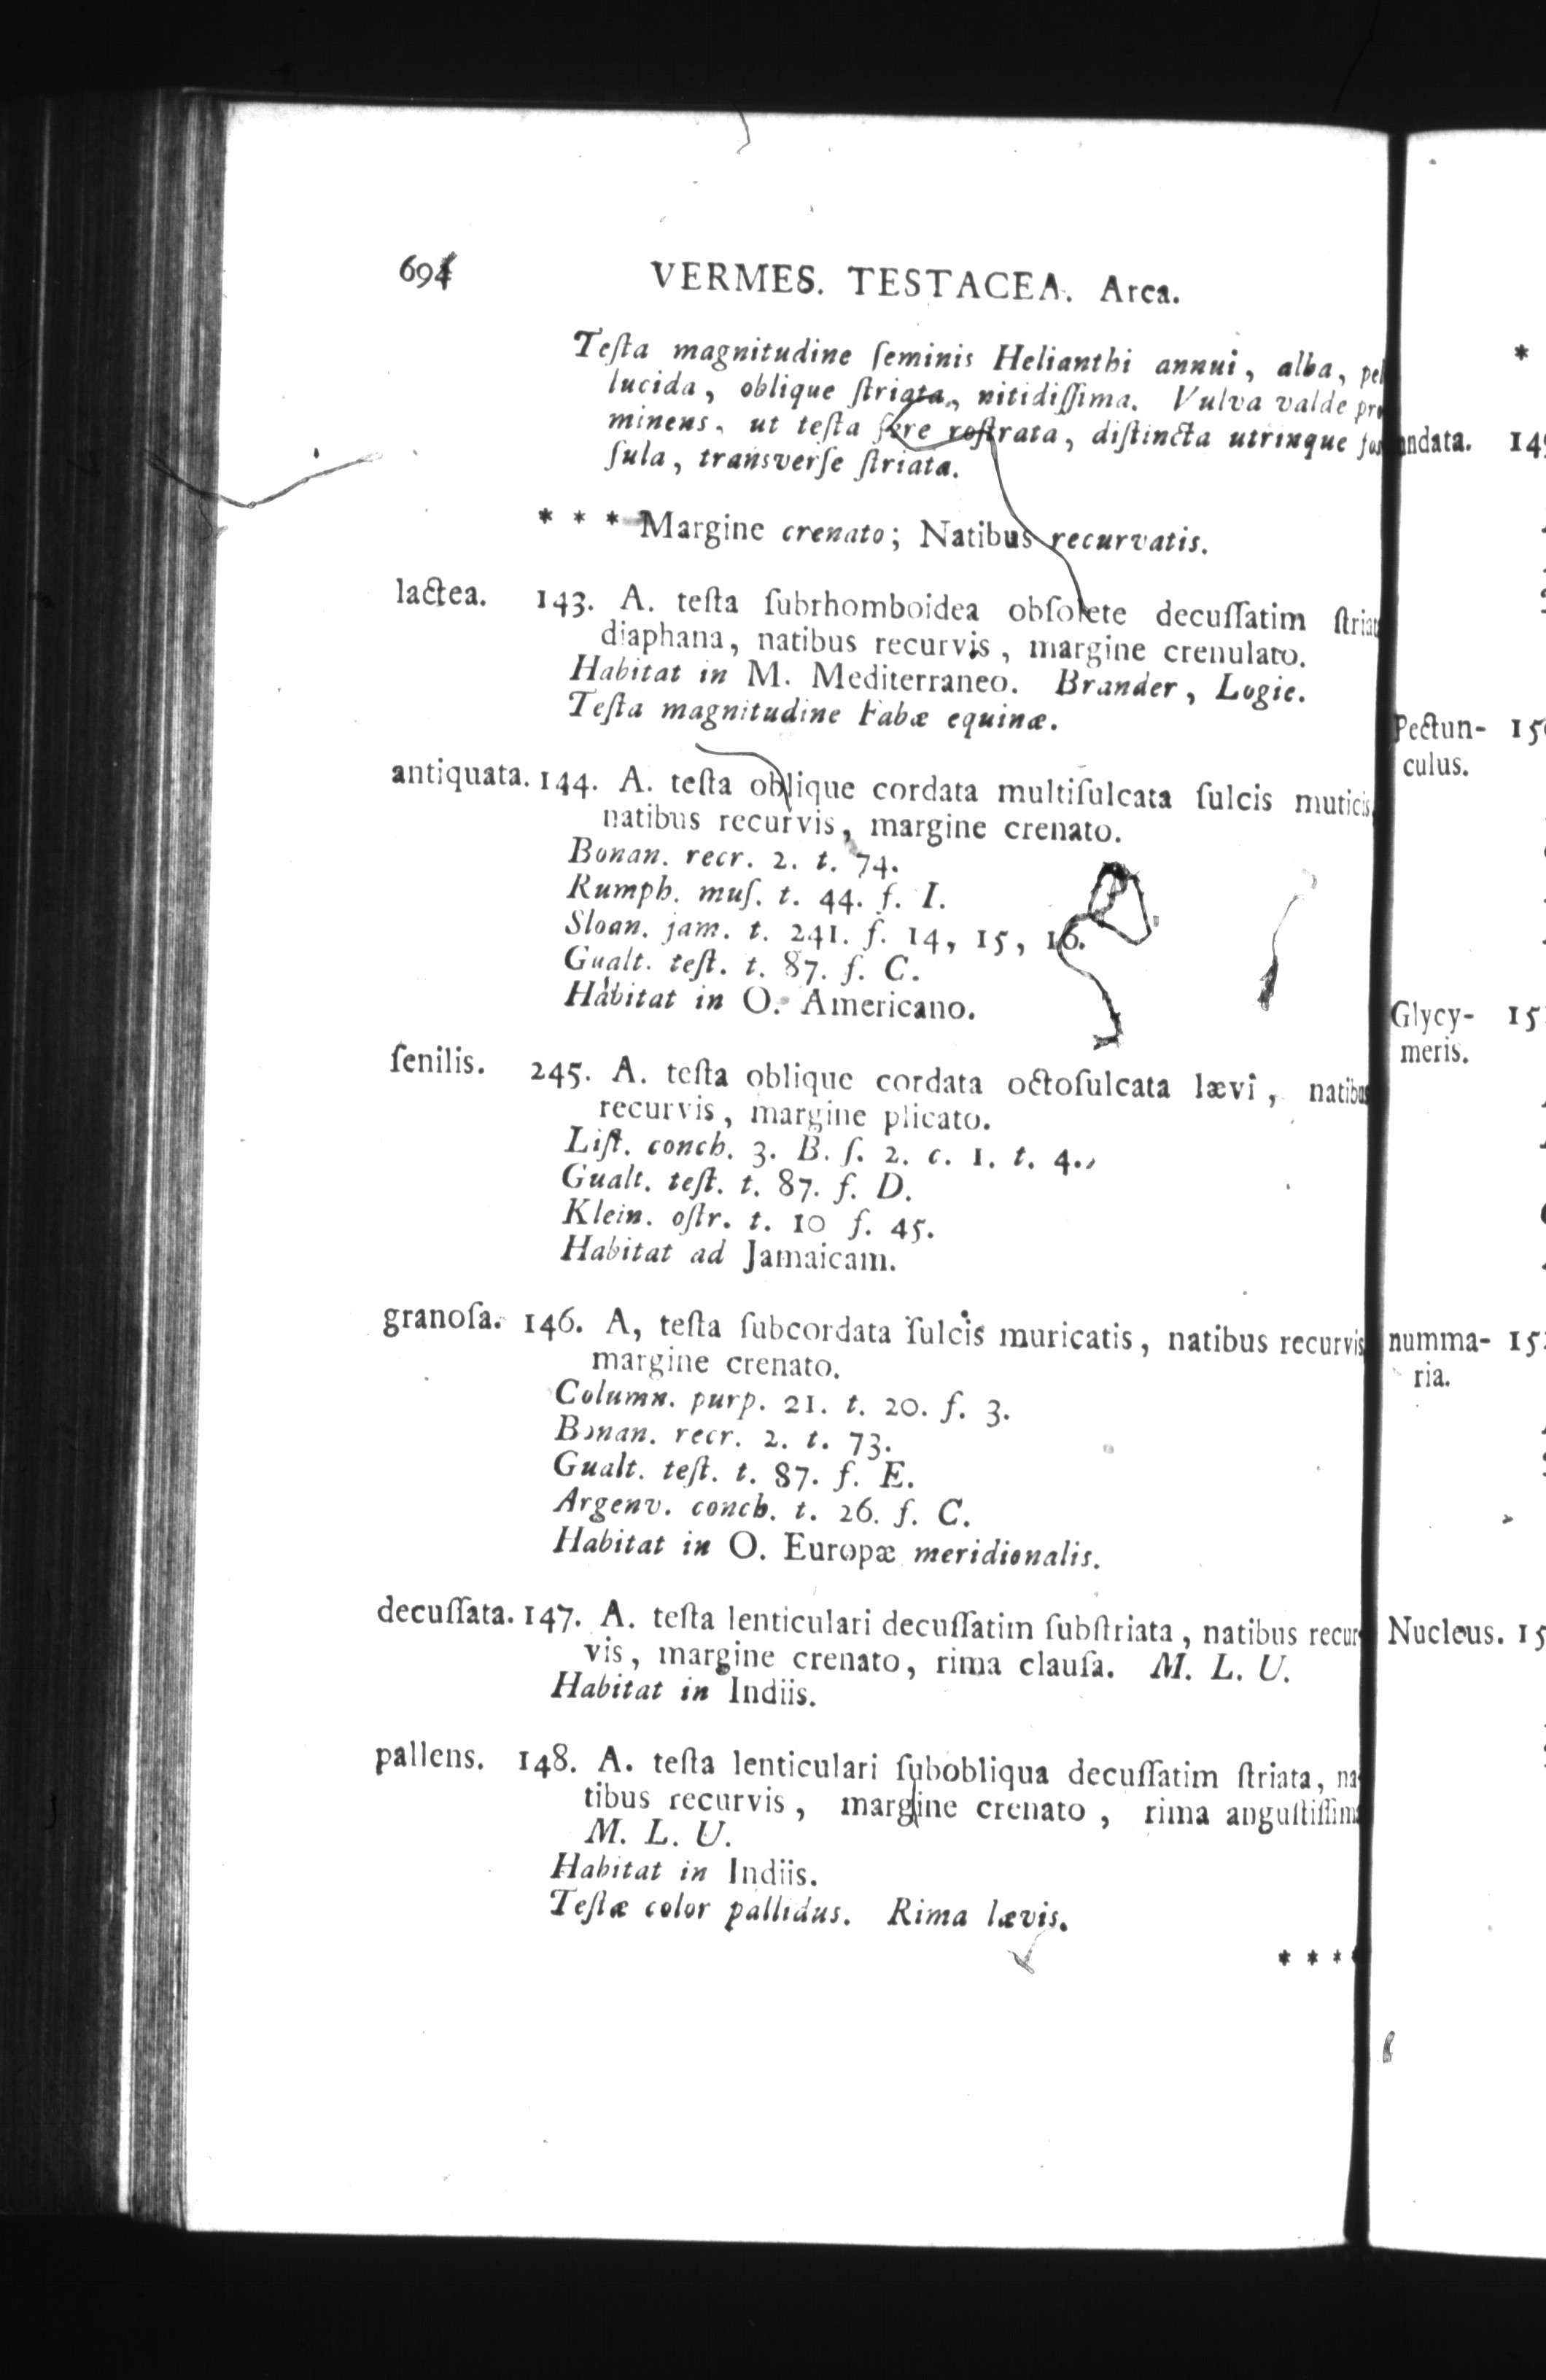 694 VERMES. TESTACEA. Arca.
Teſta magnitudine ſeminis Helianthi annui, alba, pel
lucida, oblique ſtriata, nitidiſſima. Vulva valde pro
minens, ut teſta fere roſtrata, diſtincta utrinque foſ
ſula, transverſe ſtriata.
* * * Margine crenato; Natibus recurvatis.
lactea. 143. A. teſta ſubrhomboidea obſolete decuſſatim ſtriat
diaphana, natibus recurvis, margine crenulato.
Habitat in M. Mediterraneo. Brander, Logie.
Teſta magnitudine Fabæ equinæ.
antiquata. 144. A. teſta oblique cordata multiſulcata ſulcis muticis,
natibus recurvis, margine crenato.
Bonan. recr. 2. t. 74.
Rumph. muſ. t. 44. f. I.
Sloan. jam. t. 241. f. 14, 15, 16.
Gualt. teſt. t. 87. f. C.
Habitat in O. Americano.
ſenilis. 245. A. teſta oblique cordata octoſulcata lævi, natibus
recurvis, margine plicato.
Liſt. conch. 3. B. ſ. 2. c. 1. t. 4.
Gualt. teſt. t. 87. f. D.
Klein. oſtr. t. 10 f. 45.
Habitat ad Jamaicam.
granoſa. 146. A, teſta ſubcordata ſulcis muricatis, natibus recurvis
margine crenato.
Column. purp. 21. t. 20. f. 3.
Bonan. recr. 2. t. 73.
Gualt. teſt. t. 87. f. E.
Argenv. conch. t. 26. f. C.
Habitat in O. Europæ meridionalis.
decuſſata. 147. A. teſta lenticulari decuſſatim ſubſtriata, natibus recur-
vis, margine crenato, rima clauſa. M. L. U.
Habitat in Indiis.
pallens. 148. A. teſta lenticulari ſubobliqua decuſſatim ſtriata, na-
tibus recurvis, margine crenato, rima anguſtiſſima
M. L. U.
Habitat in Indiis.
Teſtæ color pallidus. Rima lævis.
* * * *
*
undata. 149
Pectun- 15
culus.
Glycy- 15
meris.
numma- 15
ria.
Nucleus. 15